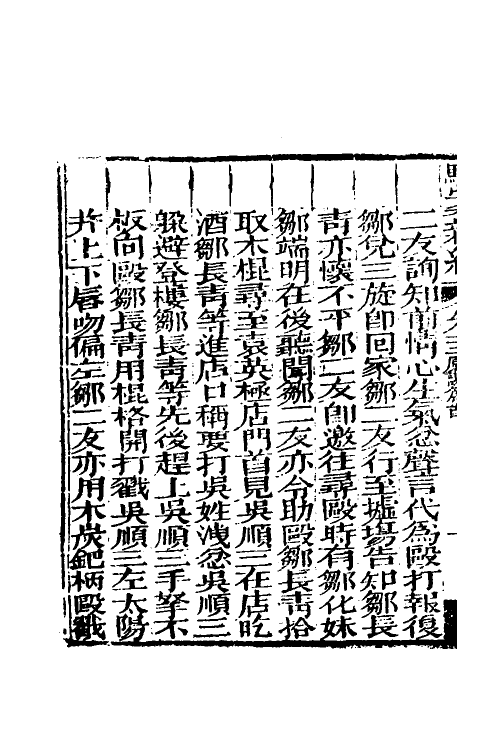 二友詢知前情心生氣忿聲言代為毆打報復
鄒兌三旋卽回家鄒二友行至墟場告知鄒長
靑亦懷不平鄒二友卽邀往尋毆時有鄒化妹
鄒端明在後聽聞鄒二友亦令助毆鄒長靑拾
取木棍尋至袁英極店門首見吳順三在店吃
酒鄒長靑等進店口稱要打吳姓洩忿吳順三
躲避登樓鄒長靑等先後趕上吳順三手拏木
板向毆鄒長靑用棍格開打戳吳順三左太陽
并上下唇吻偏左鄒二友亦用木炭鈀柄毆戳